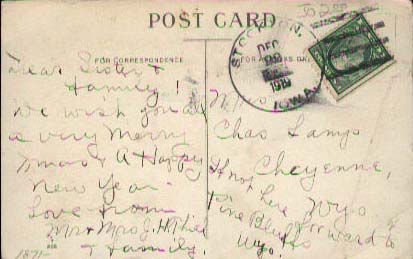 POST CARD
FOR CORRESPONDENCE
FOR ADDRESS ONLY
STOCKTON,
DEC
1919
IOWA.
Dear Sister &
Family!
We wish you all
a very Merry
Xmas & A Happy
New Year
Love from
Mr & Mrs J. H.
& Family.
Mrs
Chas Lamps
Cheyenne,
Wyo
If not here forward to
Pine Bluffs
Wyo.